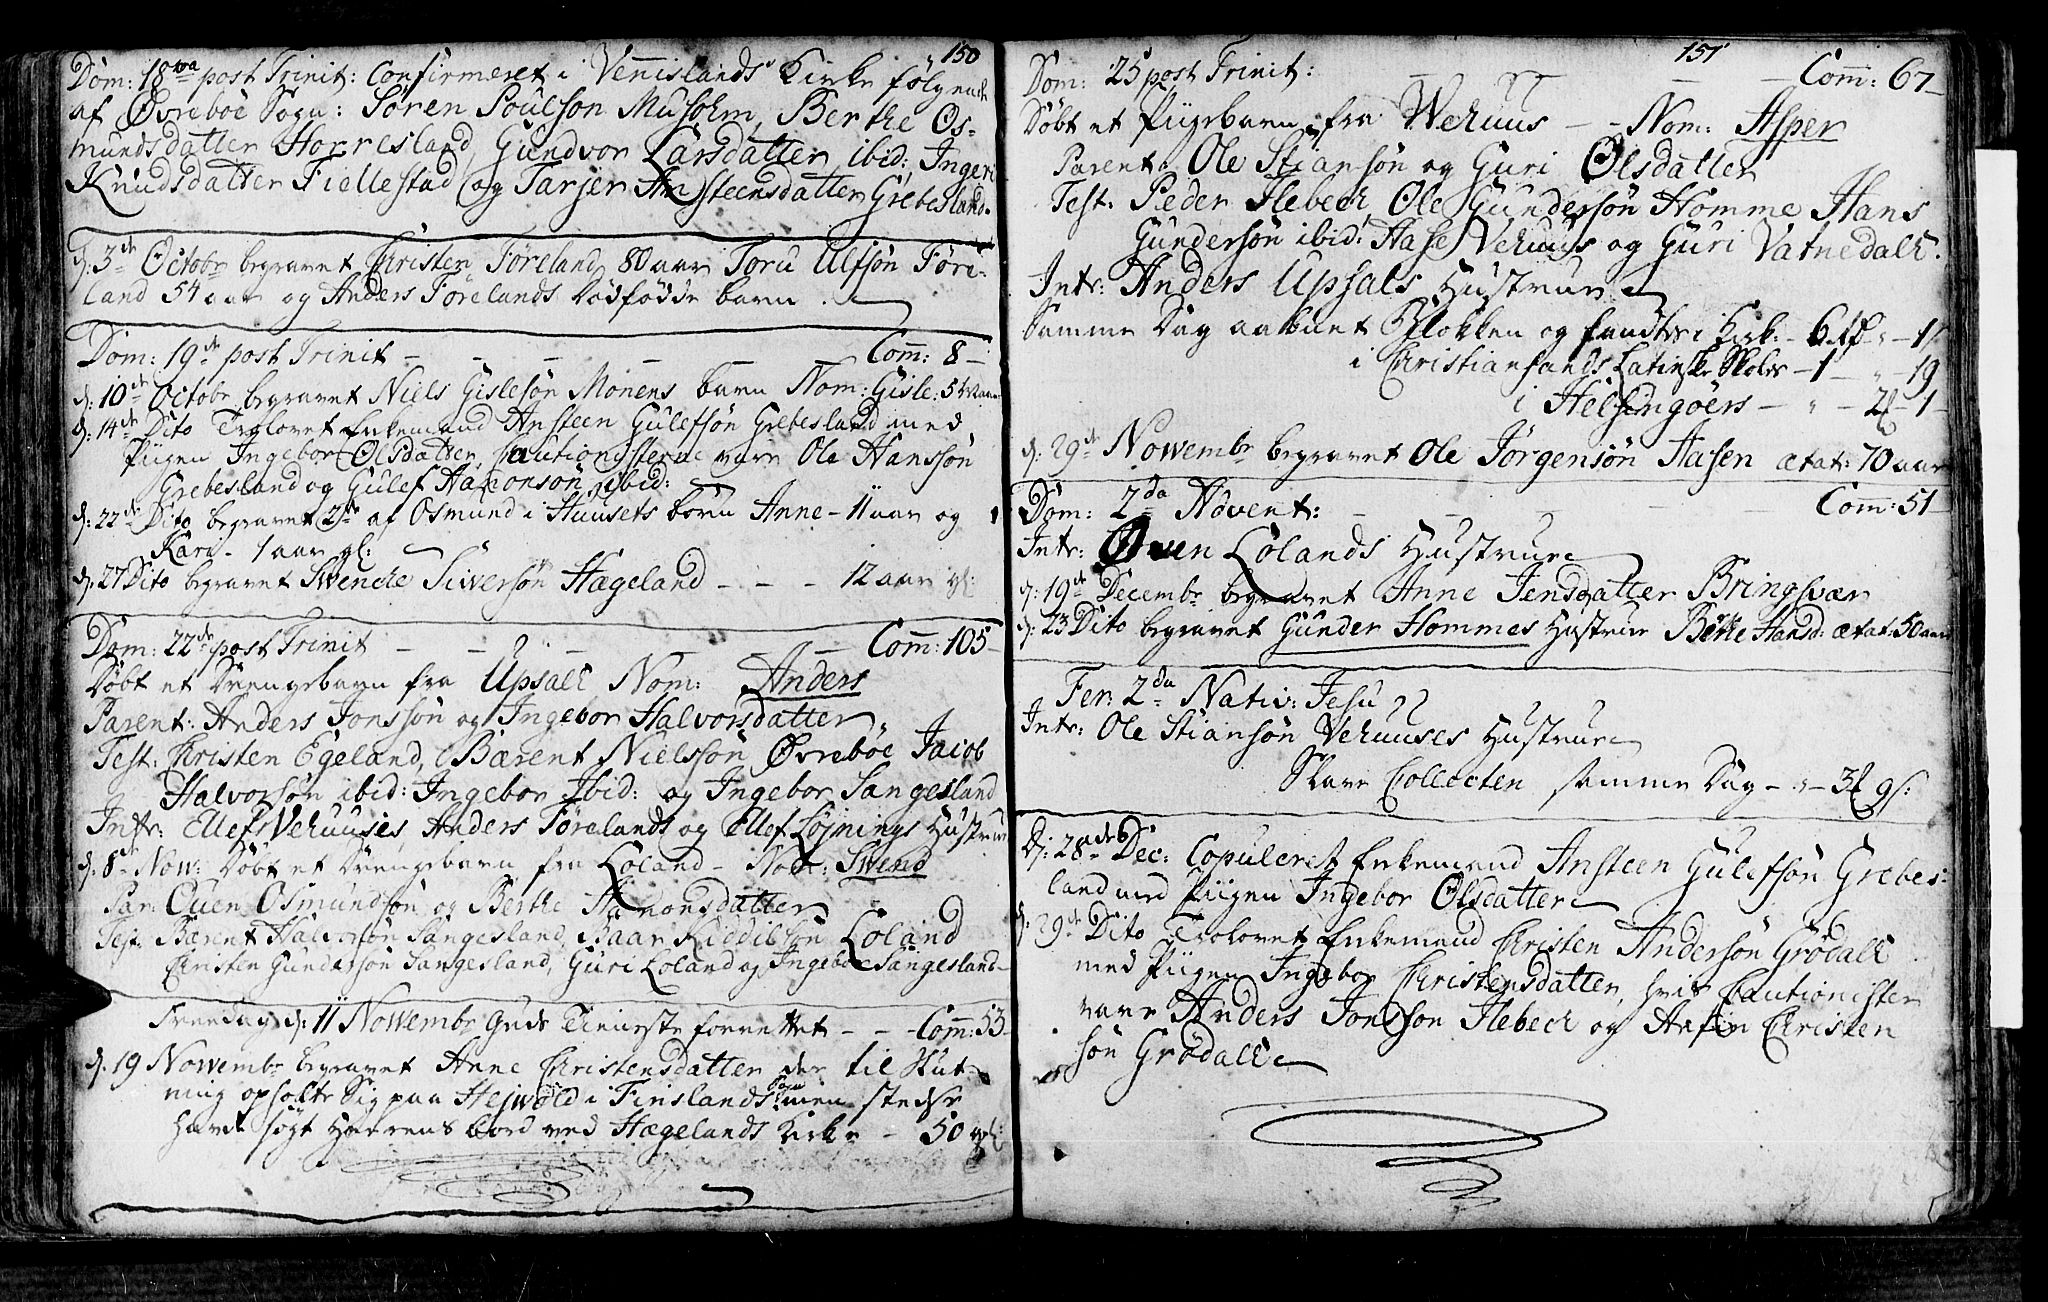 150
Dom: 18va post Trinit: Confirmeret i Vennislands Kirke følgende
af Øvreboe Sogn: Søren Poulson Musholm, Berthe Os-
mundsdatter Horresland, Gundvor Larsdatter ibid; Ingeri
Knudsdatter Fiellestad og Tarjer Ansteensdatter Grebesland.
d: 3de Octobr begravet Christen Føreland 80 aar Toru Ulfsøn Føre-
land 54 aar og Anders Førelands Dødfødde barn.
Dom: 19de post Trinit - - - - - Com: 8 -
d: 10de Octobr begravet Niels Gislesøn Monens barn Nom: Gisle:
d: 14de Dito Trolovet Enkemand Ansteen Gulefsøn Grebesland med
Piigen Ingebor Olsdatter, Cautionisterne vare Ole Hansson
Grebesland og Gulef Haaonsøn ibid:
d: 22de Dito begravet 2de af Osmund i Huusets børn Anne - 11 aar og
Kari - 1 aar gl:
d: 27 Dito begravet Swenche Siwersøn Hægeland - - - 12 aar gl:
Dom: 22de post Trinit - - - - - Com: 105 -
Døbt et Drengebarn fra Upsall Nom: Anders
Parent: Anders Jonssøn og Ingebor Halvorsdatter
Test: Christen Egeland, Bærent Nielssøn Øvreboe Jacob
Halvorsøn ibid: Ingebor Ibid: og Ingebor Sangesland
Intr: Ellefs Vehuuses Anders Førelands og Ellef Løjnings Hustruer
d: 8de Now: Døbt et Drengebarn fra Loland - Nom: Swend
Par: Ouen Osmundsøn og Berthe Haaonsdatter
Test: Bærent Halvorsøn Sangesland, Baar Kiddilsøn Loland
Christen Gundersøn Sangesland, Guri Loland og Ingebor Sangesland
Freedag d: 11 Nowembr Guds Tieneste forrettet - - - Com: 53 -
d. 19 Nowembr begravet Anne Christensdatter der til Slut-
ning opholte Sig paa Hejwold i Finslands Sogn men stedse
havde søgt Herrens bord ved Hægelands Kirke - 50 gl:
151
Dom: 25 post Trinit: - - - Com: 67 -
Døbt et Piigebarn fra Wehuus - - Nom: Asper
Parent: Ole Stiansøn og Guri Olsdatter
Test: Peder Flebech Ole Gundersøn Homme Hans
Gundersøn ibid: Aase Vehuus og Guri Vatnedall.
Intr: Anders Upsals Hustrue
Samme Dag aabnet Blokken og fandtes i Kirk: - 6 - 1
i Christiansands Latinske Skoles - 1 - 19
i Helsingøers - - 2 - 1 -
d: 29de Nowembr begravet Ole Jørgensøn Aasen ætat: 70 aar
Dom: 2da Advent: - - - - Com: 51 -
Intr: Ouen Lolands Hustrue
d: 19de Decembr begravet Anne Jensdatter Bringsvær
d: 23 Dito begravet Gunder Hommes Hustrue Berte Hansd: ætat: 50 aar
Fer: 2da Nativ: Jesu
Intr: Ole Stiansøn Vehuuses Hustrue
Collecten samme Dag - 3 9
d: 28de Dec: Copuleret Enkemand Ansteen Gulefsøn Grebes-
land med Piigen Ingebor Olsdatter
d: 29de Dito Trolovet Enkemand Christen Andersøn Grødall
med Piigen Ingebor Christensdatter, hvis Cautionister
vare Anders Jonsson Flebech og Christen
søn Grødall